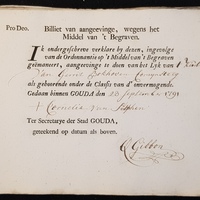 Pro Deo. Billiet van aangeevinge, wegens het
Middel van 't Begraven.
Ik ondergeschreve verklare by deeze, ingevolge
van de Ordonnantie op 't Middel van 't Begraven
geëmaneert, aangeevinge te doen van het Lyk van 't Kind
Van
als gehoorende onder de Classis van d'onvermogende.
Gedaan binnen GOUDA den 28 September 1791
+ Cornelia van
Ter Secretarye der Stad GOUDA,
geteekend op datum als boven.